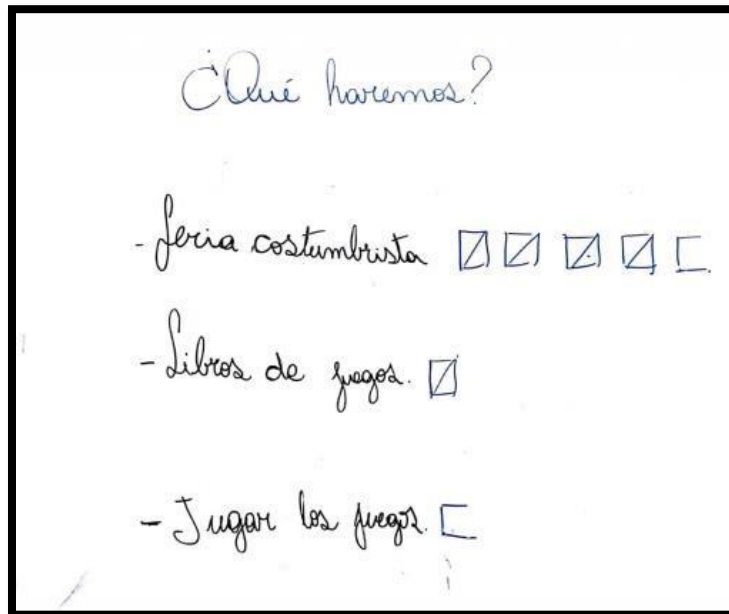 ¿Qué haremos?
- feria costumbrista
- Libros de juegos.
- Jugar los juegos.